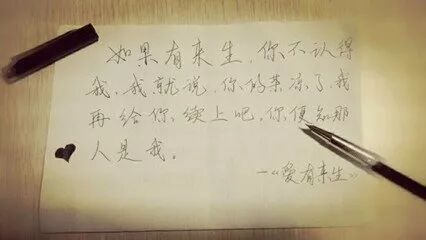 如果有来生，你不认得
我，我就说，你的茶凉了，我
再给你续上吧，你便知那
人是我。
—《爱有来生》